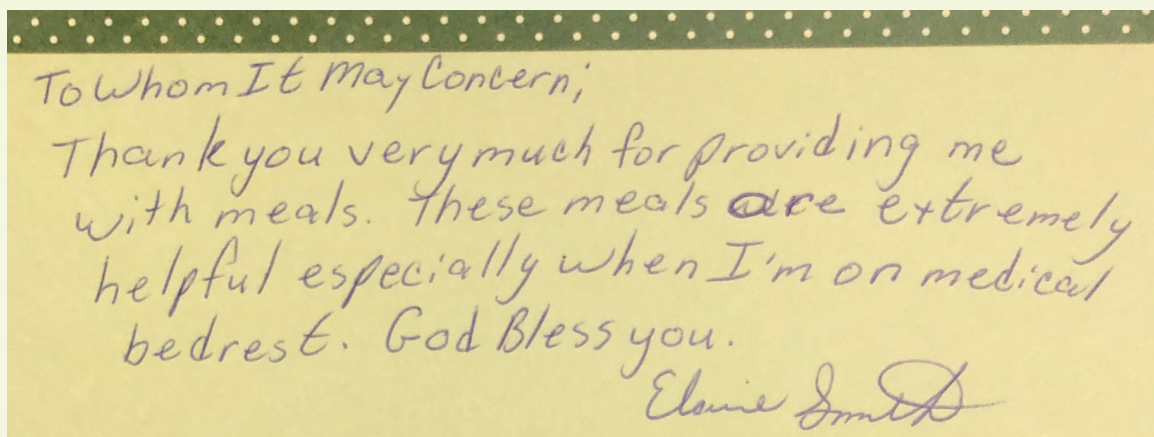 To Whom It May Concern;
Thank you very much for providing me
with meals. These meals are extremely
helpful especially when I'm on medical
bedrest. God Bless you.
Elaine Smith